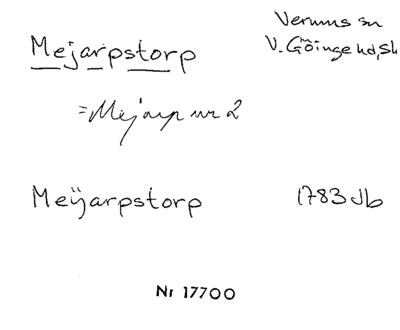 Mejarpstorp
Verums sn
V. Göinge hd, Sk
= Mejarp nr 2
Meÿarpstorp
1783 Jb
Nr 17700